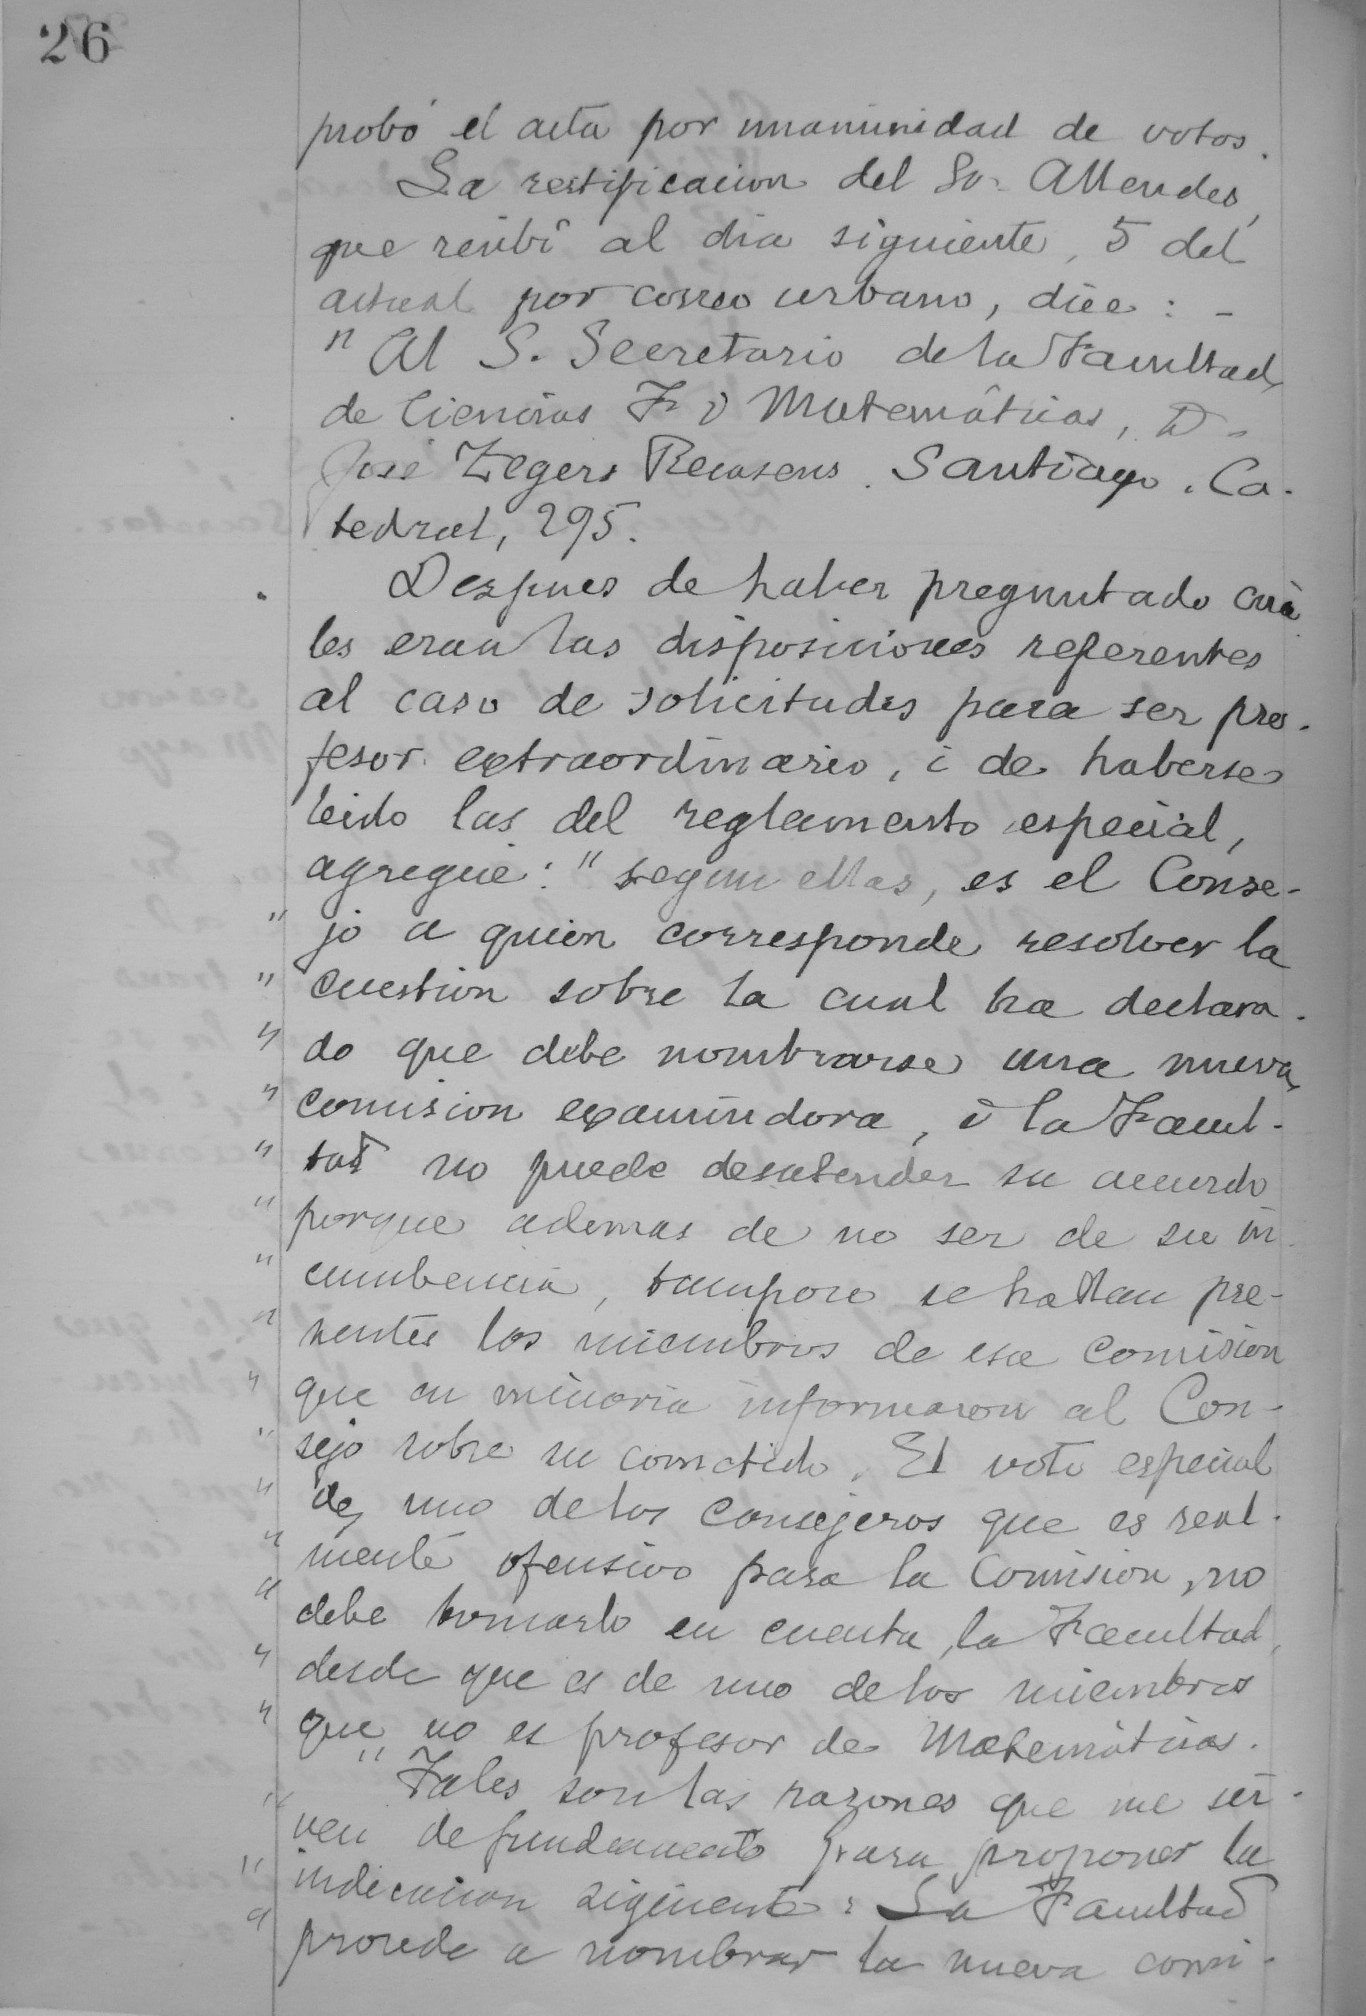 26
probó el acta por unanimidad de votos.
La rectificacion del Sr. Allendes,
que recibí al dia siguiente, 5 del
actual por correo urbano, dice: -
" Al S. Secretario de la Facultad
de Ciencias F. i Matemáticas, D.
José Zegers Recasens. Santiago. Ca-
tedral, 295.
Despues de haber preguntado cuá
les eran las disposiciones referentes
al caso de solicitudes para ser pro-
fesor extraordinario, i de haberse
leido las del reglamento especial,
agregué: " segun ellas, es el Conse-
" jo a quien corresponde resolver la
" cuestion sobre la cual ha declara-
" do que debe nombrarse una nueva
" comision examindora, i la Facul-
" tad no puede desatender su acuerdo
" porque ademas de no ser de su in
" cumbencia, tampoco se hallan pre-
" sentes los miembros de esa Comision
" que en minoria informaron al Con-
" sejo sobre su cometido. El voto especial
" de uno de los Consejeros que es real-
" mente ofensivo para la Comision, no
" debe tomarlo en cuenta la Facultad,
" desde que es de uno de los miembros
" que no es profesor de Matemáticas.
" Tales son las razones que me sir-
" ven de fundamento para proponer la
" indicacion siguiente: La Facultad
" procede a nombrar la nueva comi-